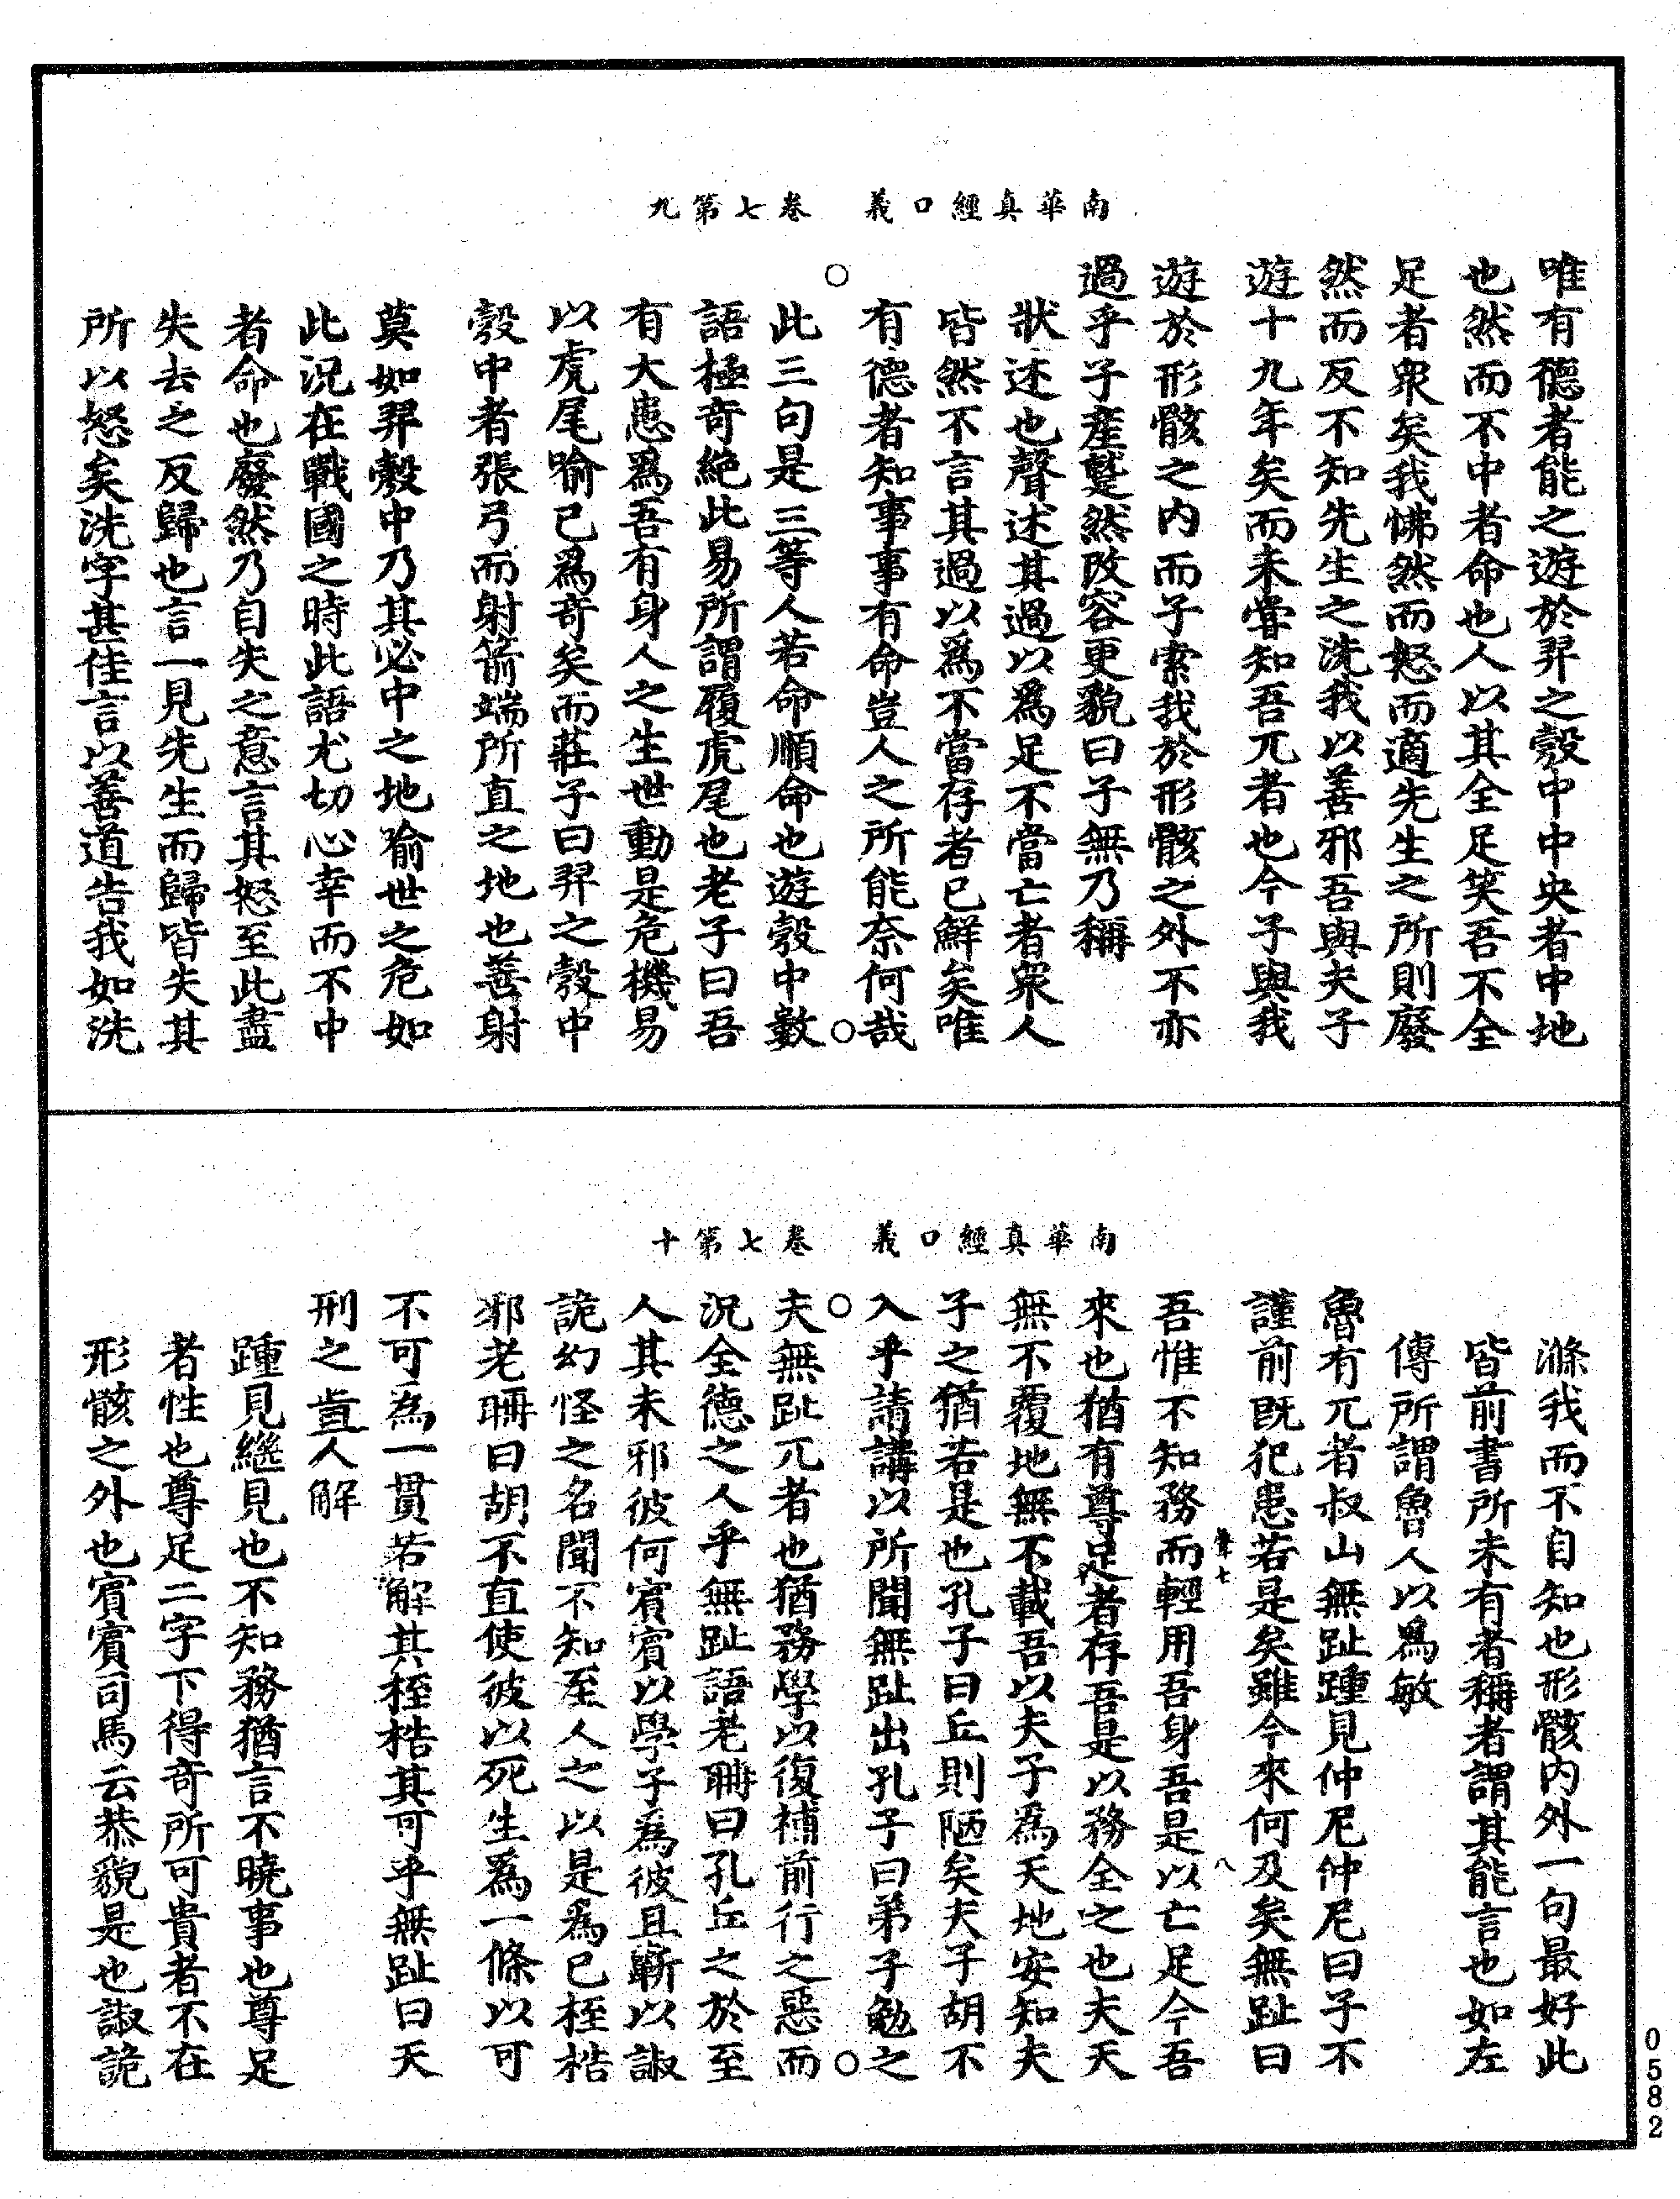 南華真經口義　卷七第九
唯有德者能之遊於羿之彀中中央者中地
也然而不中者命也人以其全足笑吾不全
足者衆矣我怫然而怒而適先生之所則廢
然而反不知先生之洗我以善邪吾與夫子
遊十九年矣而未嘗知吾兀者也今子與我
遊於形骸之内而子索我於形骸之外不亦
過乎子產蹵然改容更貌曰子無乃稱
狀述也聲述其過以爲足不當亡者衆人
皆然不言其過以爲不當存者已鮮矣唯
有德者知事事有命豈人之所能奈何哉
此三句是三等人若命順命也遊彀中數
語極奇絶此易所謂履虎尾也老子曰吾
有大患爲吾有身人之生世動是危機易
以虎尾喻已爲奇矣而莊子曰羿之彀中
彀中者張弓而射箭端所直之地也善射
莫如羿彀中乃其必中之地喻世之危如
此況在戰國之時此語尤切心幸而不中
者命也廢然乃自失之意言其怒至此盡
失去之反歸也言一見先生而歸皆失其
所以怒矣洗字甚佳言以善道告我如洗
南華真經口義　卷七第十
滌我而不自知也形骸内外一句最好此
皆前書所未有者稱者謂其能言也如左
傳所謂魯人以爲敏
魯有兀者叔山無趾踵見仲尼仲尼曰子不
謹前既犯患若是矣雖今來何及矣無趾曰
吾惟不知務而輕用吾身吾是以亡足今吾
來也猶有尊足者存吾是以務全之也夫天
無不覆地無不載吾以夫子爲天地安知夫
子之猶若是也孔子曰丘則陋矣夫子胡不
入乎請講以所聞無趾出孔子曰弟子勉之
夫無趾兀者也猶務學以復補前行之惡而
況全德之人乎無趾語老聃曰孔丘之於至
人其未邪彼何賓賓以學子爲彼且蘄以諔
詭幻怪之名聞不知至人之以是爲已桎梏
邪老聃曰胡不直使彼以死生爲一條以可
不可為一貫若解其桎梏其可乎無趾曰天
刑之豈人解
踵見繼見也不知務猶言不曉事也尊足
者性也尊足二字下得奇所可貴者不在
形骸之外也賓賓司馬云恭貌是也諔詭
七
八
0582